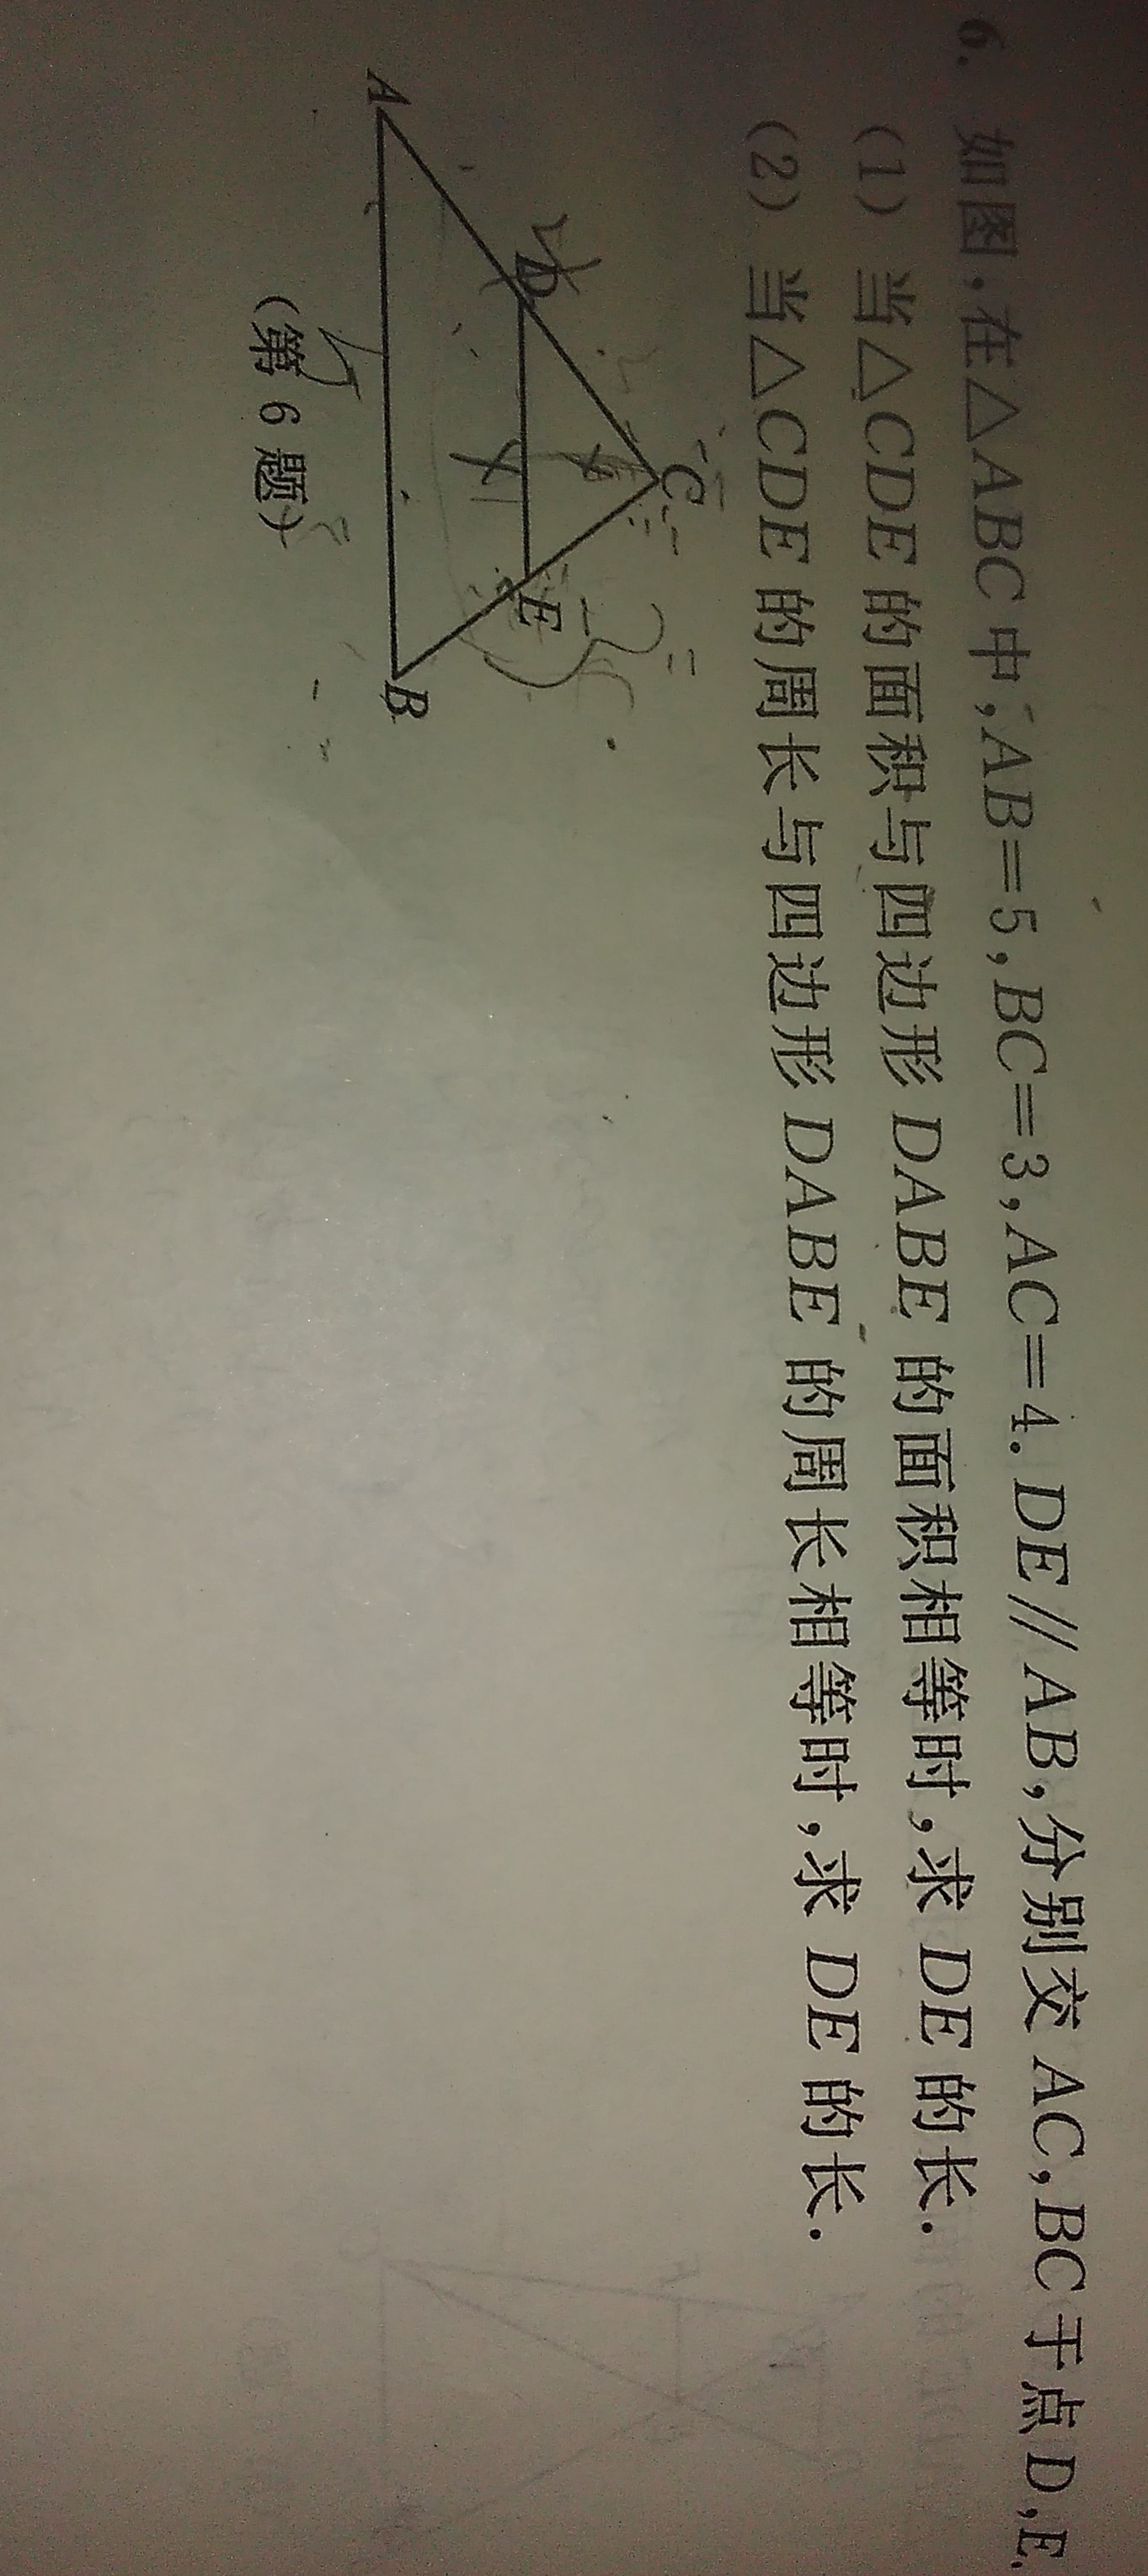 6. 如图,在△ABC中,AB=5,BC=3,AC=4.DE//AB,分别交AC,BC于点D,E.
(1) 当△CDE的面积与四边形DABE的面积相等时,求DE的长.
(2) 当△CDE的周长与四边形DABE的周长相等时,求DE的长.
C
D
E
A
B
(第6题)